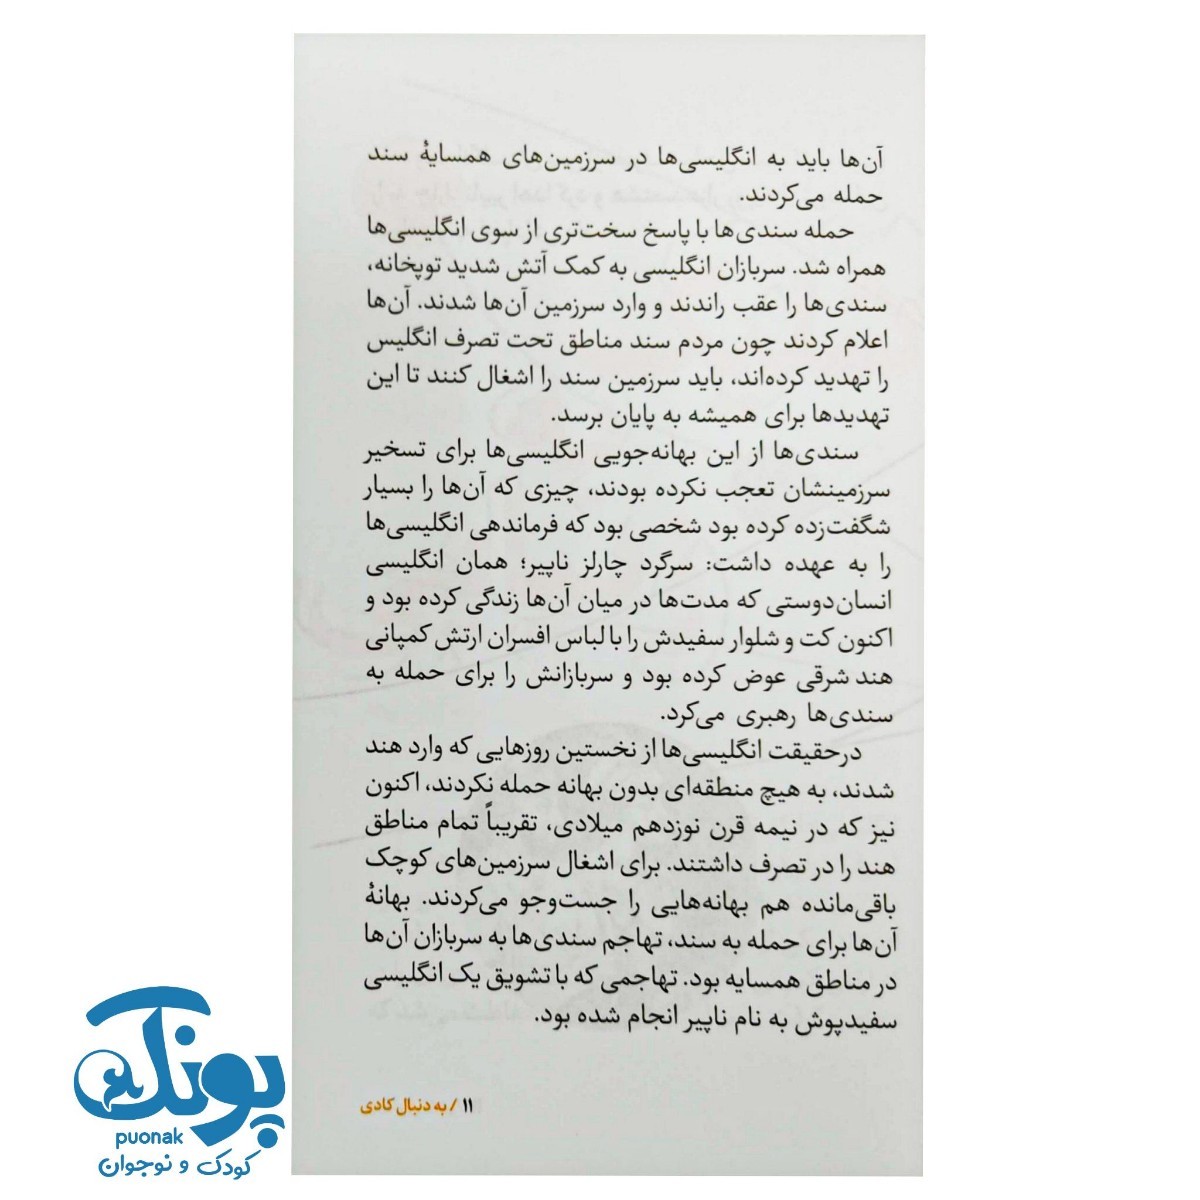 آن‌ها باید به انگلیسی‌ها در سرزمین‌های همسایهٔ سند
حمله می‌کردند.
حمله سندی‌ها با پاسخ سخت‌تری از سوی انگلیسی‌ها
همراه شد. سربازان انگلیسی به کمک آتش شدید توپخانه،
سندی‌ها را عقب راندند و وارد سرزمین آن‌ها شدند. آن‌ها
اعلام کردند چون مردم سند مناطق تحت تصرف انگلیس
را تهدید کرده‌اند، باید سرزمین سند را اشغال کنند تا این
تهدیدها برای همیشه به پایان برسد.
سندی‌ها از این بهانه‌جویی انگلیسی‌ها برای تسخیر
سرزمینشان تعجب نکرده بودند، چیزی که آن‌ها را بسیار
شگفت‌زده کرده بود شخصی بود که فرماندهی انگلیسی‌ها
را به عهده داشت: سرگرد چارلز ناپیر؛ همان انگلیسی
انسان‌دوستی که مدت‌ها در میان آن‌ها زندگی کرده بود و
اکنون کت و شلوار سفیدش را با لباس افسران ارتش کمپانی
هند شرقی عوض کرده بود و سربازانش را برای حمله به
سندی‌ها رهبری می‌کرد.
درحقیقت انگلیسی‌ها از نخستین روزهایی که وارد هند
شدند، به هیچ منطقه‌ای بدون بهانه حمله نکردند، اکنون
نیز که در نیمه قرن نوزدهم میلادی، تقریباً تمام مناطق
هند را در تصرف داشتند. برای اشغال سرزمین‌های کوچک
باقی‌مانده هم بهانه‌هایی را جست‌وجو می‌کردند. بهانهٔ
آن‌ها برای حمله به سند، تهاجم سندی‌ها به سربازان آن‌ها
در مناطق همسایه بود. تهاجمی که با تشویق یک انگلیسی
سفیدپوش به نام ناپیر انجام شده بود.
۱۱ / به دنبال کادی
پونک
puonak
کودک و نوجوان